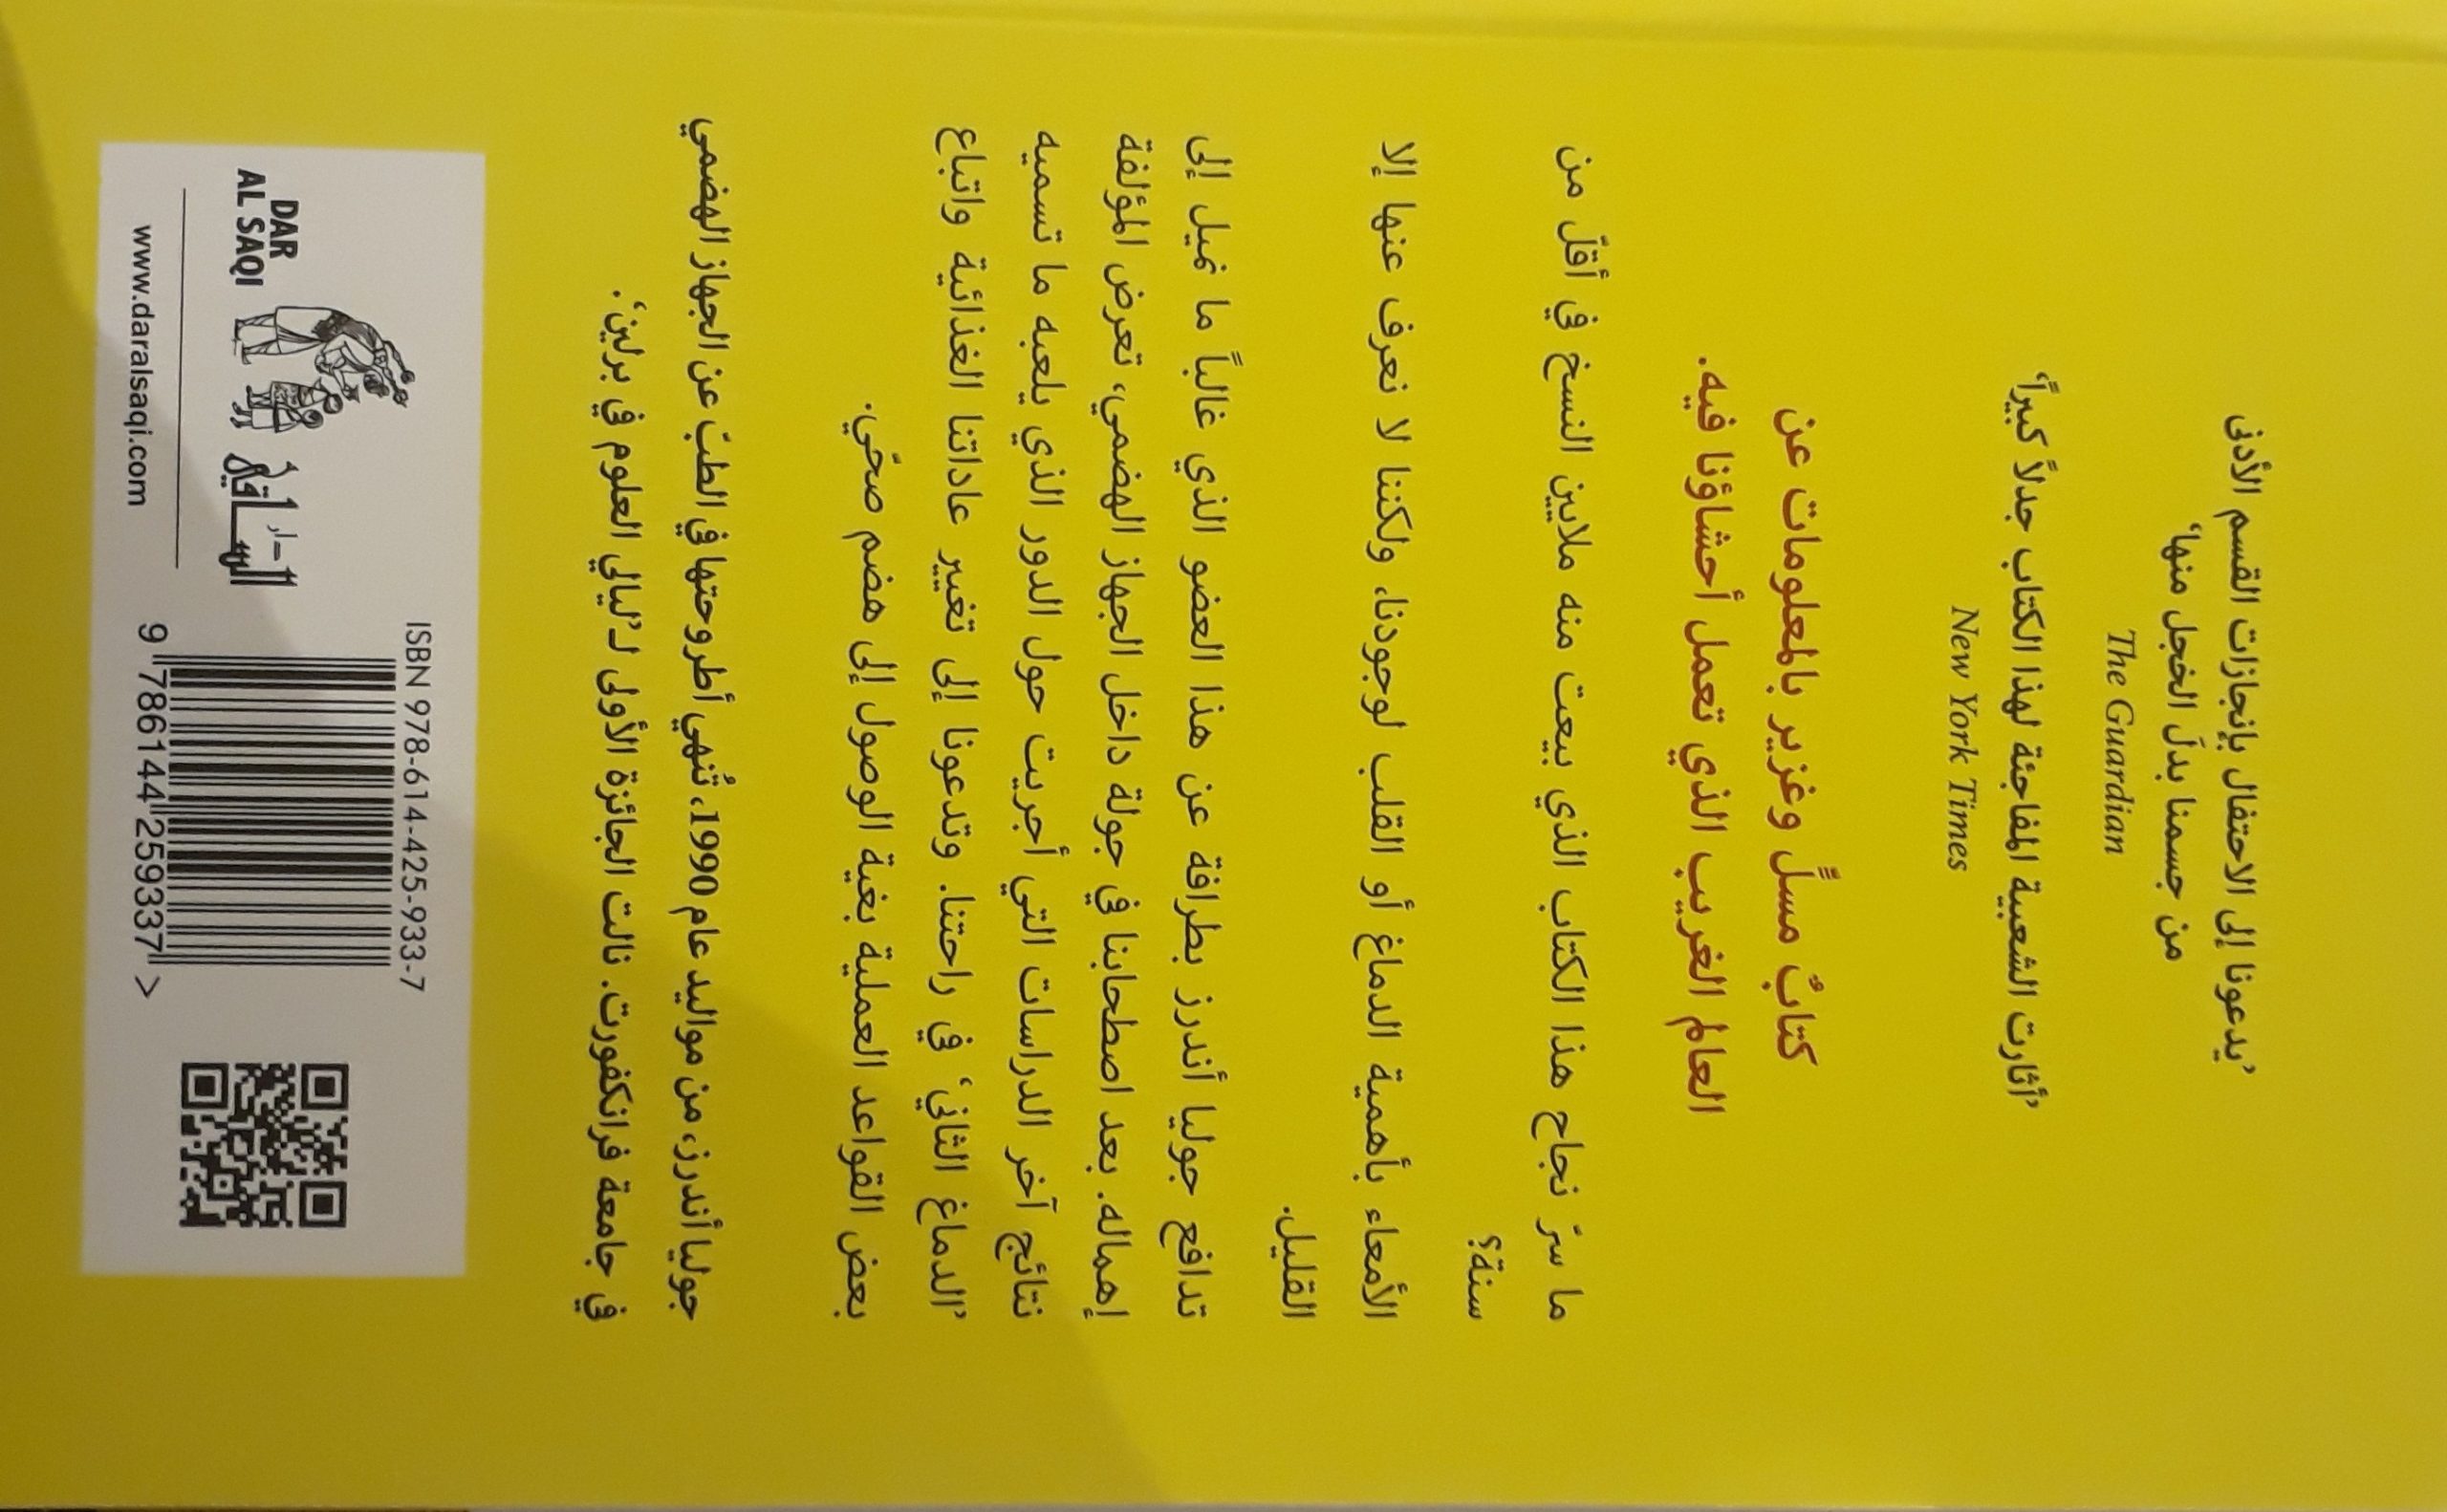 ’يدعونا إلى الاحتفال بإنجازات القسم الأدنى
من جسمنا بدلَ الخجل منها‘
The Guardian
’أثارت الشعبية المفاجئة لهذا الكتاب جدلاً كبيراً‘
New York Times
كتابٌ مسلٍّ وغزير بالمعلومات عن
العالم الغريب الذي تعمل أحشاؤنا فيه.
ما سرّ نجاح هذا الكتاب الذي بيعت منه ملايين النسخ في أقلّ من
سنة؟
الأمعاء بأهمية الدماغ أو القلب لوجودنا، ولكننا لا نعرف عنها إلا
القليل.
تدافع جوليا أندرز بطرافة عن هذا العضو الذي غالباً ما نميل إلى
إهماله. بعد اصطحابنا في جولة داخل الجهاز الهضمي، تعرض المؤلفة
نتائج آخر الدراسات التي أجريت حول الدور الذي يلعبه ما تسميه
’الدماغ الثاني‘ في راحتنا. وتدعونا إلى تغيير عاداتنا الغذائية واتباع
بعض القواعد العملية بغية الوصول إلى هضم صحّي.
جوليا أندرز، من مواليد عام 1990، تُنهي أطروحتها في الطبّ عن الجهاز الهضمي
في جامعة فرانكفورت. نالت الجائزة الأولى لـ’ليالي العلوم في برلين‘.
DAR
AL SAQI
دار
الساقي
www.daralsaqi.com
ISBN 978-614-425-933-7
9 786144 259337 >